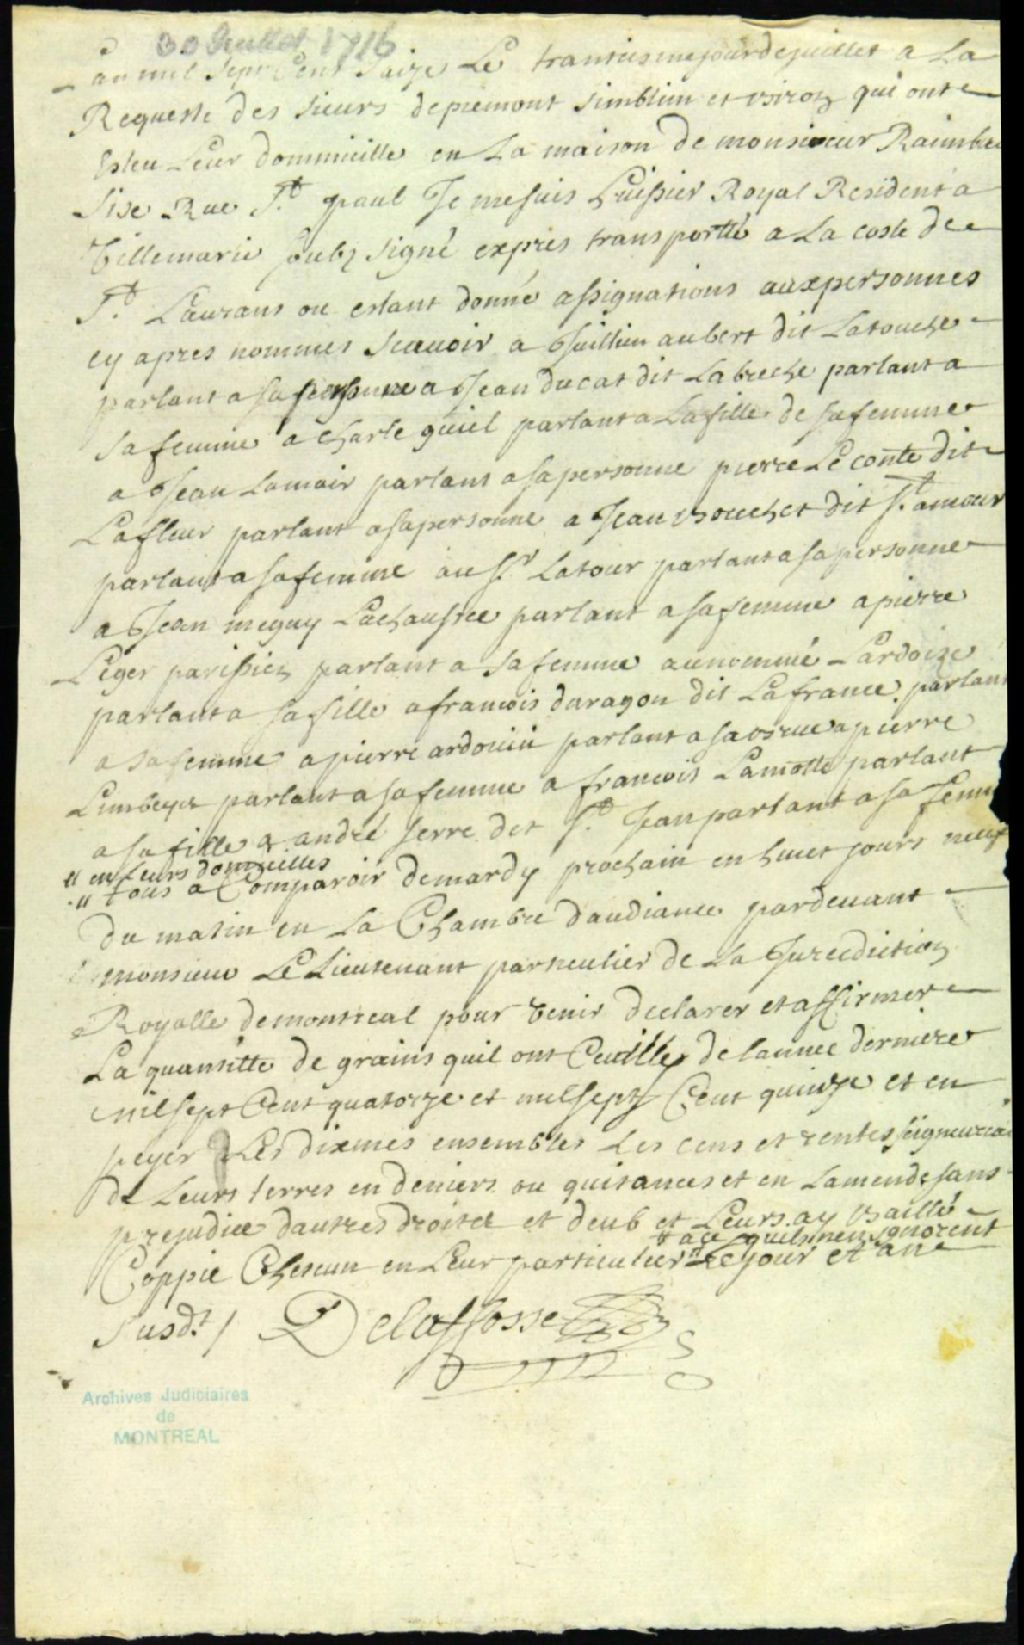 30 Juillet 1716
an mil Sept Cent Saize Le trantiesme jour de juillet a La
Requeste des sieurs depiemont Simblim et qui ont
Esleu Leur dommicille en La maison de monsieur Raimba
Size Rue St. paul Je me suis huissier Royal Resident a
Villemarie soubz signé exprés transportté a La coste de
St. Laurans ou estant donné assignations aux personnes
cy apres nommes scauoir a Guillim aubert dit Latouche
parlant a sa personne a Jean ducat dit Labreche parlant a
sa femme a charle parlant a La fille de sa femme
a Jean Lamair parlant a sa personne pierre Le conte dit
Lafleur parlant a sa personne a Jean bouchet dit St. amour
parlant a sa femme au Sr. Latour parlant a sa personne
a Jean Lachaussee parlant a sa femme a pierre
Leger parissien parlant a sa femme au nommé Lardoize
parlant a sa fille a francois daragon dit Lafrance parlant
a sa femme a pierre ardouin parlant a sa a pierre
parlant a sa femme a francois Lamotte parlant
a sa fille a andré serre dit St. Jean parlant a sa femm
" en Leurs domicilles
" tous a Comparoir de mardy prochain en huiet jours neuf
du matin en La Chambre daudiance pardeuant
monsieur Le Lieutenant particulier de La Jurediction
Royalle de montreal pour venir declarer et affirmer
La quantitte de grains quil ont Ceuille de lannee derniere
milsept Cent quatorze et milsept Cent quinze et en
peyer Les dixmes ensembles Les cens et rentes seigneuria
de Leurs terres en deniers ou quitances et en Lamende sans
prejudice dautres droits et deub et Leurs ay baillé
" a ce quils nen ignorent
Coppie Chescun en Leur particulier " Le jour et an
Susdt. / Delafosse
Archives Judiciaires
de
MONTREAL